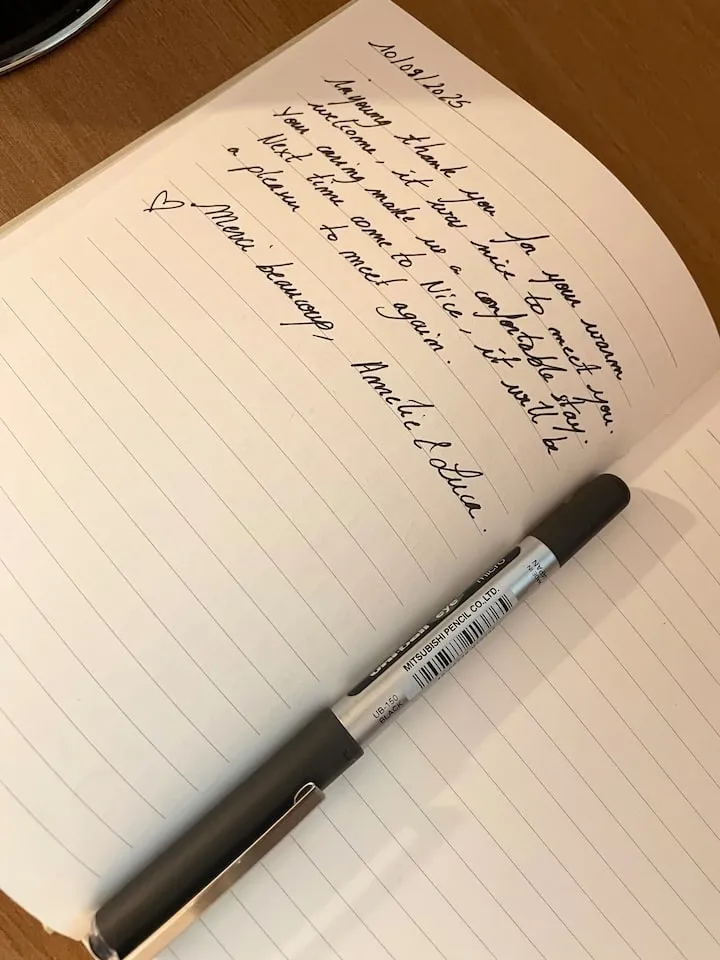 10/09/2025
Inyoung thank you for your warm
welcome, it was nice to meet you.
Your caring make us a comfortable stay.
Next time come to Nice, it will be
a pleasure to meet again.
♡ Merci beaucoup,
Amélie & Luca.
uni-ball eye micro
MITSUBISHI PENCIL CO., LTD.
MADE IN
JAPAN
UB-150
BLACK